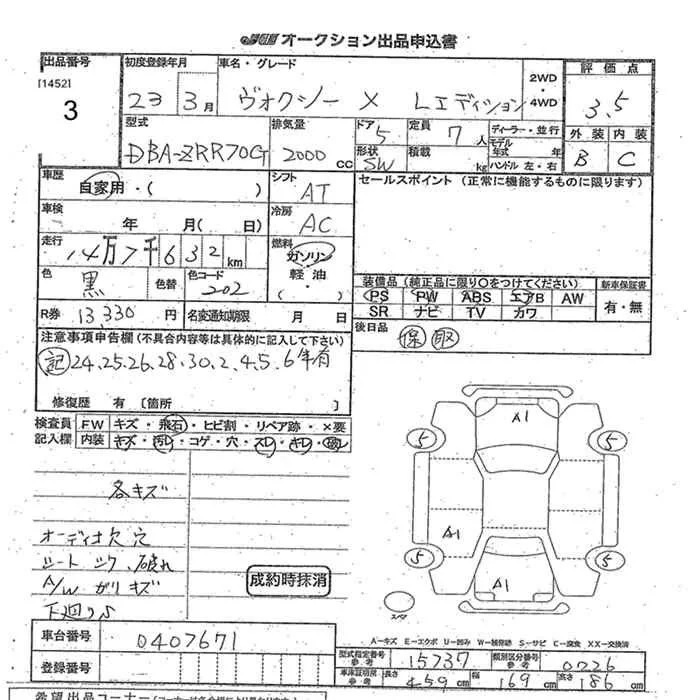 オークション出品申込書
出品番号
[1452]
3
初度登録年月
23 3月
車名・グレード
ヴォクシー X Lエディション
2WD
・
4WD
評価点
3.5
外装 内装
B C
型式
DBA-ZRR70G
排気量
2000 cc
ドア
5
形状
SW
定員
7 人
積載
kg
ディーラー・並行
モデル年式 年
ハンドル 左・右
車歴
自家用・( )
シフト
AT
車検
年 月( 日)
冷房
AC
走行
14万7千632km
燃料
ガソリン
軽油
・( )
色
黒
色替
色コード
202
R券 13,330 円
名変通知期限 月 日
セールスポイント (正常に機能するものに限ります)
装備品(純正品に限り○をつけてください)
新車保証書
PS PW ABS エアB AW
SR ナビ TV カワ
有・無
後日品
保 取
注意事項申告欄(不具合内容等は具体的に記入して下さい)
記 24.25.26.28.30.2.4.5.6年有
修復歴 有 〔箇所 〕
検査員記入欄
FW キズ・飛石・ヒビ割・リペア跡・×要
内装 キズ・汚レ・コゲ・穴・スレ・キレ・破レ
各キズ
オーディオ欠 穴
シート シワ、破れ
A/W ガリ キズ
下廻りS
成約時抹消
A1
5
5
A1
5
5
A1
スペア
A-キズ E-エクボ U-凹み W-補修跡 S-サビ C-腐食 XX-交換済
車台番号
0407671
登録番号
型式指定番号
参考
15737
類別区分番号
参考
0226
車庫証明用
参考
長さ 459 cm
幅 169 cm
高さ 186 cm
希望出品コーナー